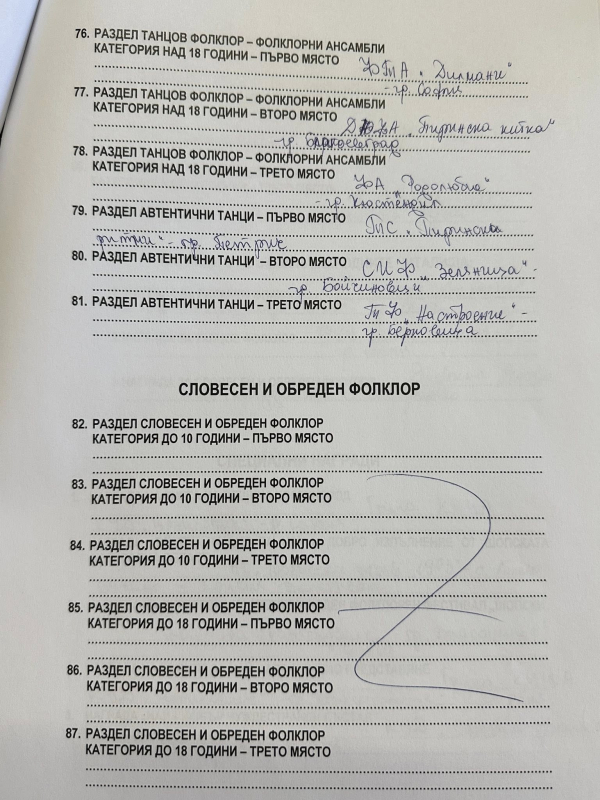 76. РАЗДЕЛ ТАНЦОВ ФОЛКЛОР – ФОЛКЛОРНИ АНСАМБЛИ
КАТЕГОРИЯ НАД 18 ГОДИНИ – ПЪРВО МЯСТО ФТА „Дилмани“
- гр. София
77. РАЗДЕЛ ТАНЦОВ ФОЛКЛОР – ФОЛКЛОРНИ АНСАМБЛИ
КАТЕГОРИЯ НАД 18 ГОДИНИ – ВТОРО МЯСТО „Пиринска китка“
- гр. Благоевград
78. РАЗДЕЛ ТАНЦОВ ФОЛКЛОР – ФОЛКЛОРНИ АНСАМБЛИ
КАТЕГОРИЯ НАД 18 ГОДИНИ – ТРЕТО МЯСТО ФА „Родолюбие“
- гр. Кюстендил
79. РАЗДЕЛ АВТЕНТИЧНИ ТАНЦИ – ПЪРВО МЯСТО ТС „Пирински
ритми“ - гр. Петрич
80. РАЗДЕЛ АВТЕНТИЧНИ ТАНЦИ – ВТОРО МЯСТО СИФ „Зеляница“ -
гр. Бойчиновци
81. РАЗДЕЛ АВТЕНТИЧНИ ТАНЦИ – ТРЕТО МЯСТО „Настроение“ -
гр. Берковица
СЛОВЕСЕН И ОБРЕДЕН ФОЛКЛОР
82. РАЗДЕЛ СЛОВЕСЕН И ОБРЕДЕН ФОЛКЛОР
КАТЕГОРИЯ ДО 10 ГОДИНИ – ПЪРВО МЯСТО
83. РАЗДЕЛ СЛОВЕСЕН И ОБРЕДЕН ФОЛКЛОР
КАТЕГОРИЯ ДО 10 ГОДИНИ – ВТОРО МЯСТО
84. РАЗДЕЛ СЛОВЕСЕН И ОБРЕДЕН ФОЛКЛОР
КАТЕГОРИЯ ДО 10 ГОДИНИ – ТРЕТО МЯСТО
85. РАЗДЕЛ СЛОВЕСЕН И ОБРЕДЕН ФОЛКЛОР
КАТЕГОРИЯ ДО 18 ГОДИНИ – ПЪРВО МЯСТО
86. РАЗДЕЛ СЛОВЕСЕН И ОБРЕДЕН ФОЛКЛОР
КАТЕГОРИЯ ДО 18 ГОДИНИ – ВТОРО МЯСТО
87. РАЗДЕЛ СЛОВЕСЕН И ОБРЕДЕН ФОЛКЛОР
КАТЕГОРИЯ ДО 18 ГОДИНИ – ТРЕТО МЯСТО